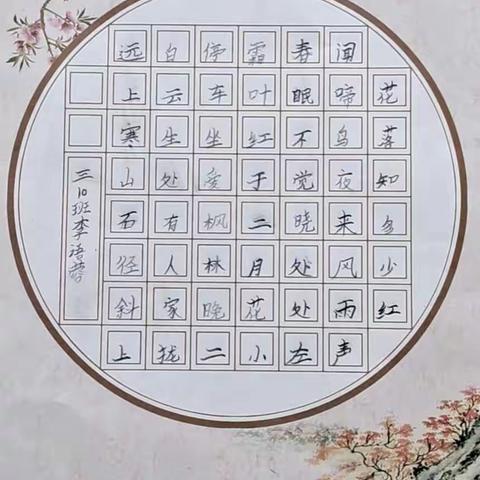 三10班李语
远上寒山石径斜上
白云生处有人家拢
停车坐爱枫林晚二
霜叶红于二月花小
春眠不觉晓处处左
闻啼鸟夜来风雨声
花落知多少红